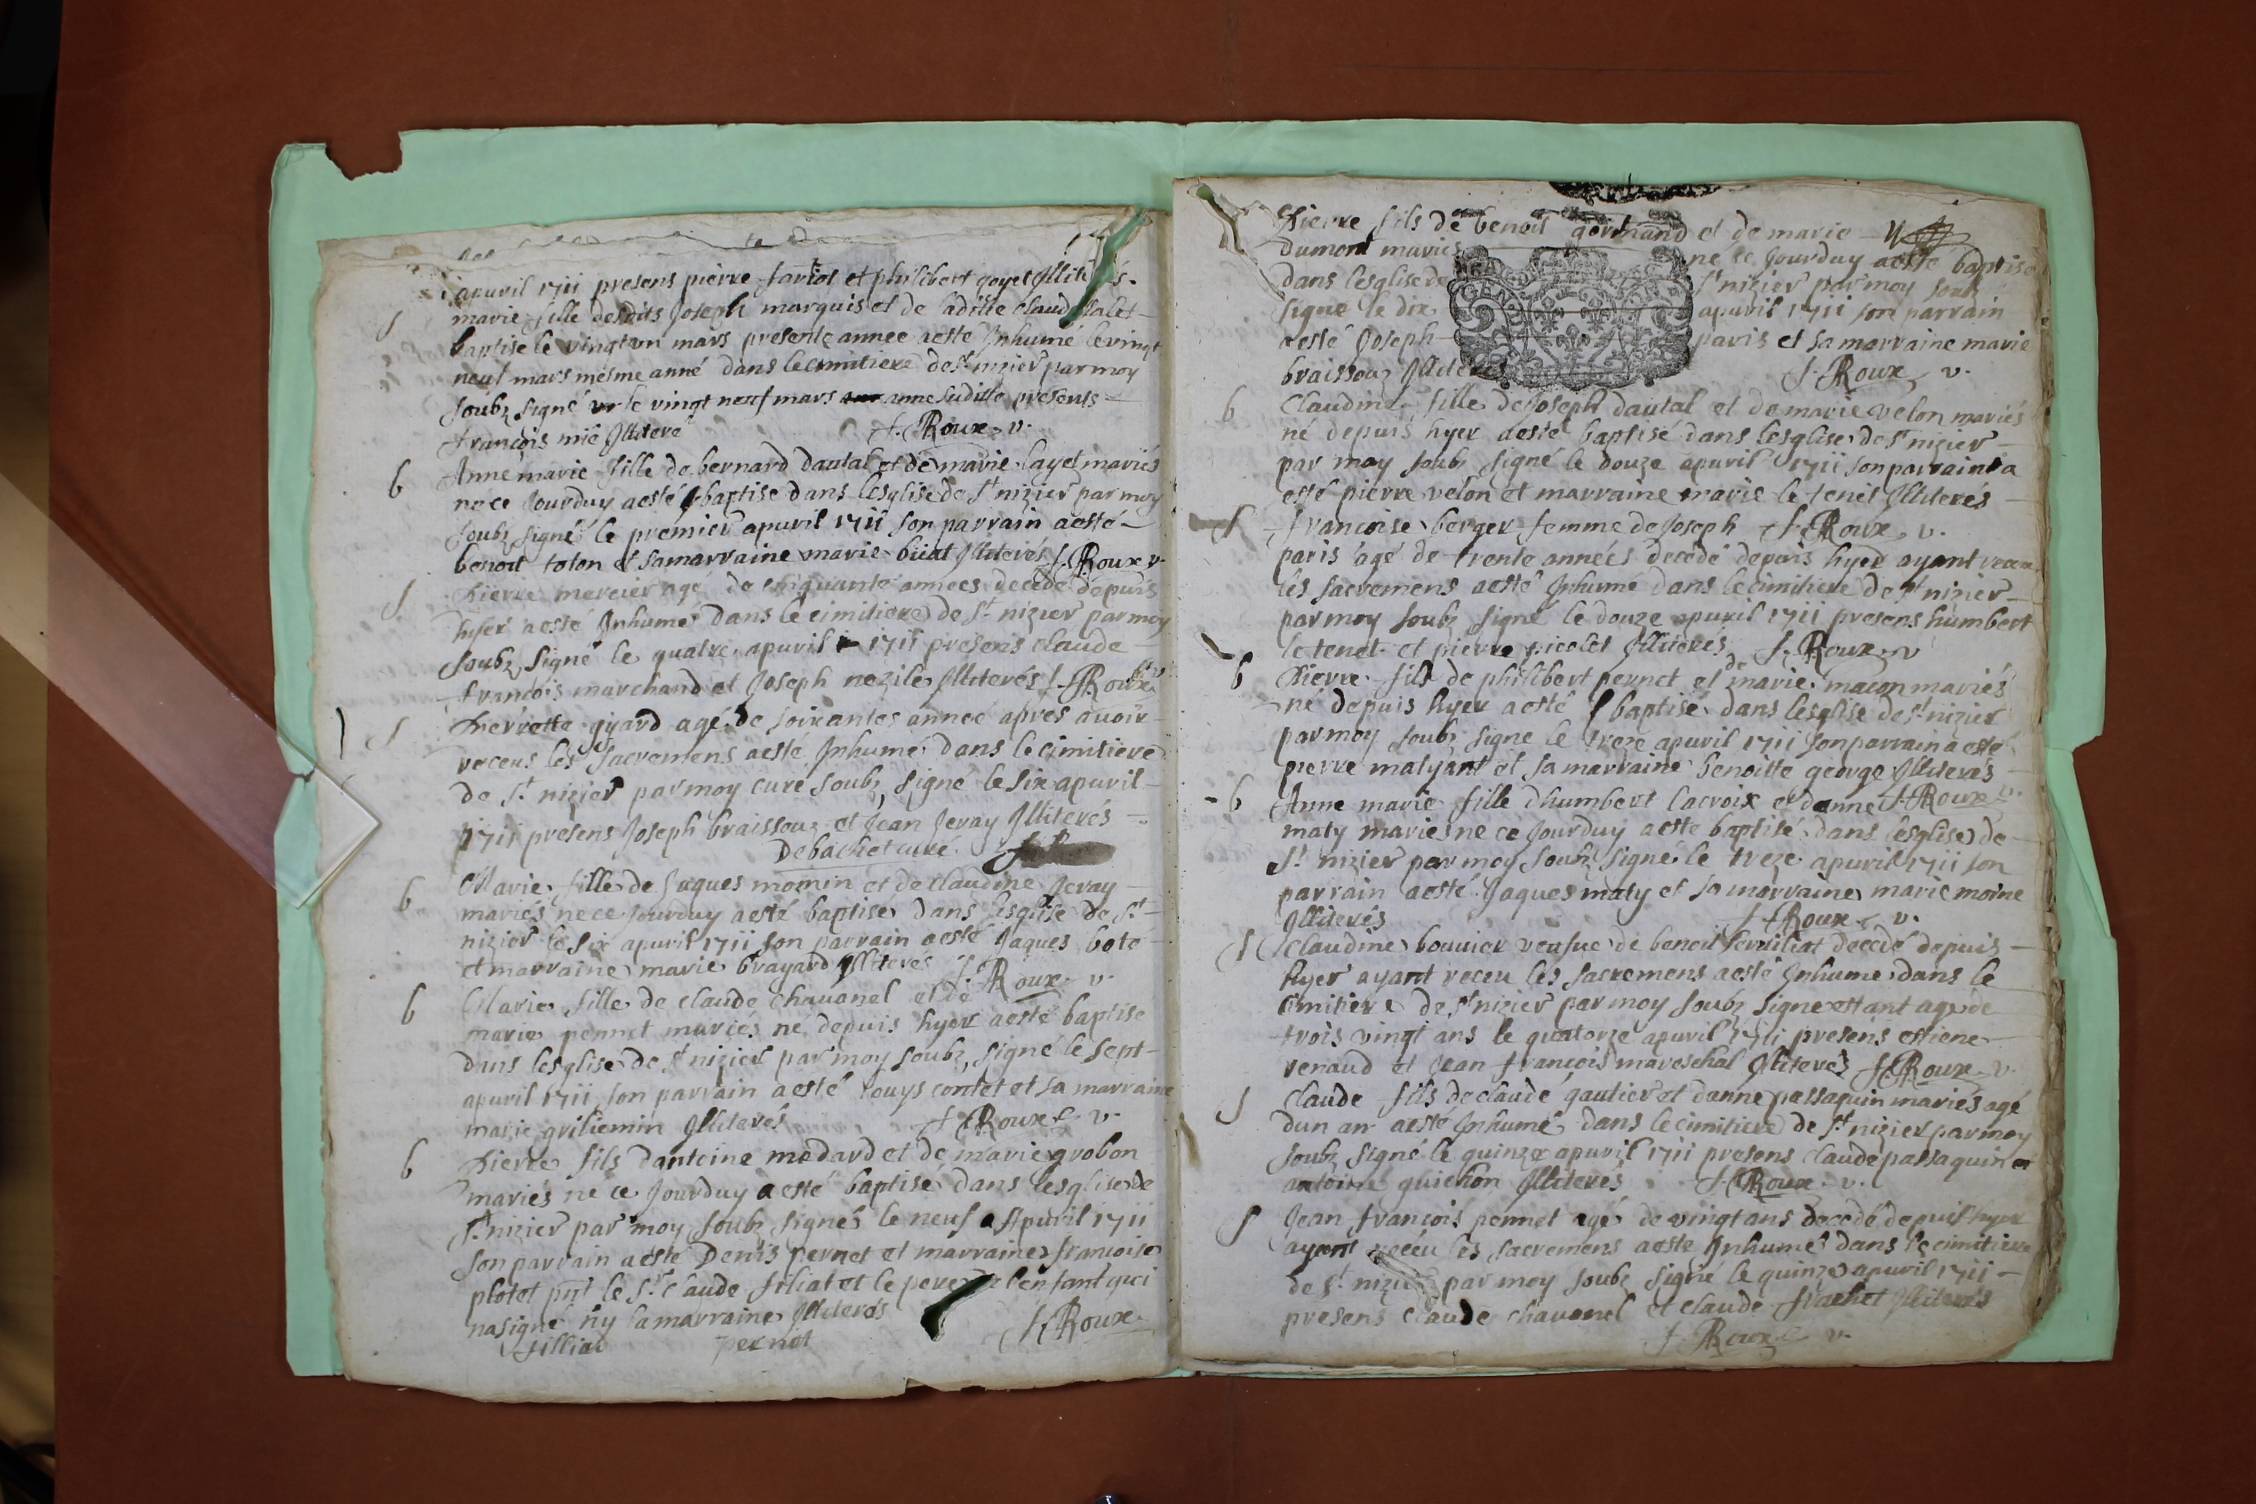 apuril 1711 presens pierre fartot et philibert goyet Illiterés
S marie fille desdits Joseph marquis et de laditte Claud Salet
baptise le vingt un mars presente annee aesté Inhumé le vingt
neuf mars mesme anné dans le cimitiere de St nizier par moy
soubz signé le vingt neuf mars anne suditte presens
françois mie Illiteré J. Roux v.
b Anne marie fille de bernard dautal et de marie layet mariés
né ce Jourduy aesté baptise dans lesglise de St nizier par moy
soubz signé le premier apuril 1711 son parrain aesté
benoit toton et sa marraine marie biiat Illiterés J. Roux v.
S Pierre mercier agé de cinquante annees decedé depuis
hyer aesté Inhumé dans le cimitiere de St nizier par moy
soubz signé le quatre apuril 1711 presens claude
francois marchand et Joseph nezile Illiterés J. Roux v.
S Pierrette gyard agé de soixantes anneé apres auoir
receus les sacremens aesté Inhumé dans le cimitiere
de St nizier par moy curé soubz signé le six apuril
1711 presens Joseph braissouz et Jean Jeray Illiterés
Debachet curé
b Marie fille de Jaques momin et de claudine Jeray
mariés né ce Jourduy aesté baptisé dans lesglise de St
nizier le six apuril 1711 son parrain aesté Jaques boté
et marraine marie brayard Illiterés J. Roux v.
b Marie fille de claude chauanel et de
marie pennet mariés né depuis hyer aesté baptise
dans lesglise de St nizier par moy soubz signé le sept
apuril 1711 son parrain aesté louys contet et sa marraine
marie griliemin Illiterés J. Roux v.
b Pierre fils dantoine medard et de marie grobon
mariés né ce Jourduy aesté baptisé dans lesglise de
St nizier par moy soubz signés le neuf Apuril 1711
son parrain aesté Denis pernet et marraine francoise
plotet pnt le Sr claude filiat et le pere de lenfant qui
na signé ny la marraine Illiterés
filliat pernot J. Roux
Pierre fils de benoit gormand et de marie
dumont mariés né ce Jourduy aesté baptisé
dans lesglise de St nizier par moy soubz
signe le dix apuril 1711 son parrain
aesté Joseph paris et sa marraine marie
braissouz Illiterés J. Roux v.
b Claudine fille de Joseph dautal et de marie velon mariés
né depuis hyer aesté baptisé dans lesglise de St nizier
par moy soubz signé le douze apuril 1711 son parrain a
esté pierre velon et marraine marie le tenet Illiterés
S francoise berger femme de Joseph J. Roux v.
paris agé de trente années decedé depuis hyer ayant receu
les sacremens aesté Inhumé dans le cimitiere de St nizier
par moy soubz signé le douze apuril 1711 presens humbert
le tenet et pierre nicolet Illiterés J. Roux v
b Pierre fils de philibert pernet et de marie macon mariés
né depuis hyer aesté baptisé dans lesglise de St nizier
par moy soubz signe le treze apuril 1711 son parrain aesté
pierre matyant et sa marraine benoitte george Illiterés
b Anne marie fille dhumbert lacroix et danne J. Roux v.
maty mariés né ce Jourduy aesté baptisé dans lesglise de
St nizier par moy soubz signé le treze apuril 1711 son
parrain aesté Jaques maty et sa marraine marie moine
Illiterés J. Roux v.
S Claudine bouuier veufue de benoit seruiliat decedé depuis
hyer ayant receu les sacremens aesté Inhumé dans le
cimitiere de St nizier par moy soubz signe ettant agé de
trois vingt ans le quatorze apuril 1711 presens estiene
renaud et Jean francois mareschal Illiterés J. Roux v.
S Claude fils de claude gautier et danne passaquin mariés agé
dun an aesté Inhumé dans le cimitiere de St nizier par moy
soubz signé le quinze apuril 1711 presens claude passaquin et
antoine guichon Illiterés J. Roux v.
S Jean francois pennet agé de vingt ans decedé depuis hyer
ayant receu les sacremens aesté Inhumé dans le cimitiere
de St nizier par moy soubz signé le quinze apuril 1711
presens claude chauanel et claude frachet Illiterés
J. Roux v.